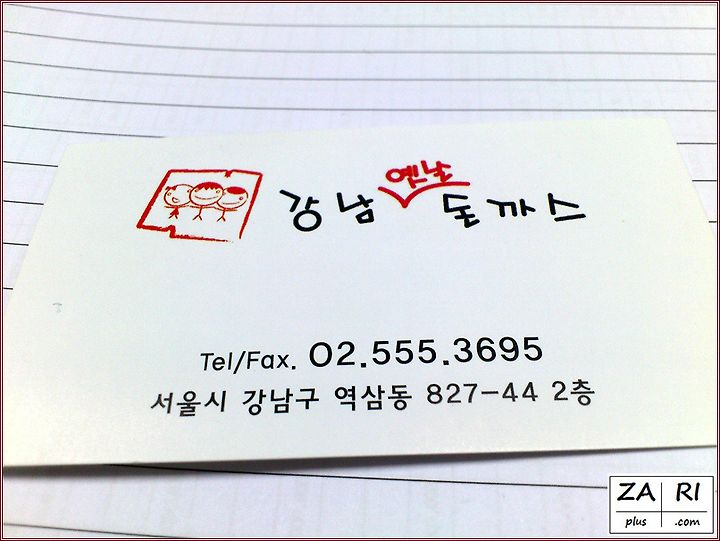 강남 옛날 돈까스
Tel/Fax. 02.555.3695
서울시 강남구 역삼동 827-44 2층
ZA RI
plus .com